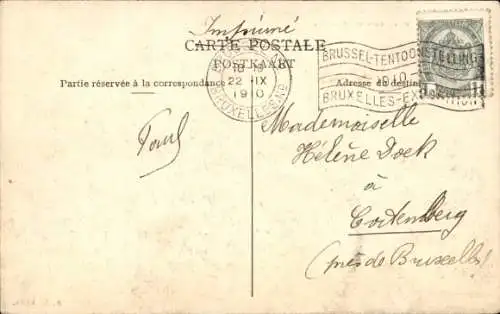 Imprimé
CARTE POSTALE
POSTKAART
Partie réservée à la correspondance
Adresse du destin
22 IX
1910
BRUSSEL-TENTOONSTELLING
1910
BRUXELLES-EX
Paul
Mademoiselle
Hélène Doek
à
Cortenberg
(près de Bruxelles)